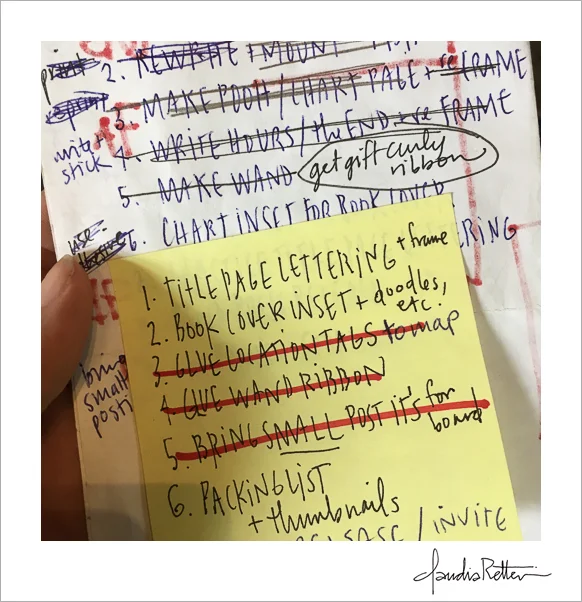 2. REWRITE + MOUNT
3. MAKE POOH / CHART PAGE + re FRAME
4. WRITE HOURS / the END + re FRAME
write +
stick
5. MAKE WAND
get gift curly
ribbon
use
6. CHART INSET FOR BOOK COVER
ERING
1. TITLE PAGE LETTERING + frame
2. BOOK COVER INSET + doodles,
etc.
3. GLUE LOCATION TAGS to map
4 GLUE WAND RIBBON
5. BRING SMALL POST IT'S for
board
bring
small
posti
6. PACKING LIST
+ thumbnails
RELEASE / INVITE
Claudia Retter